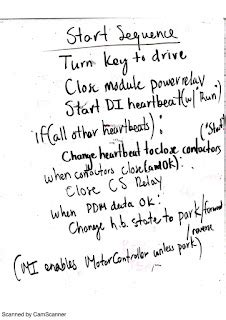 Start Sequence
Turn key to drive
Close module power relay
Start DI heartbeat (w/ "Run")
if (all other heartbeats):
("Start")
Change heartbeat to close contactors
when contactors close (and OK):
Close CS Relay
when PDM data OK:
Change h.b. state to park/forward
/reverse
(DI enables MotorController unless park)
Scanned by CamScanner